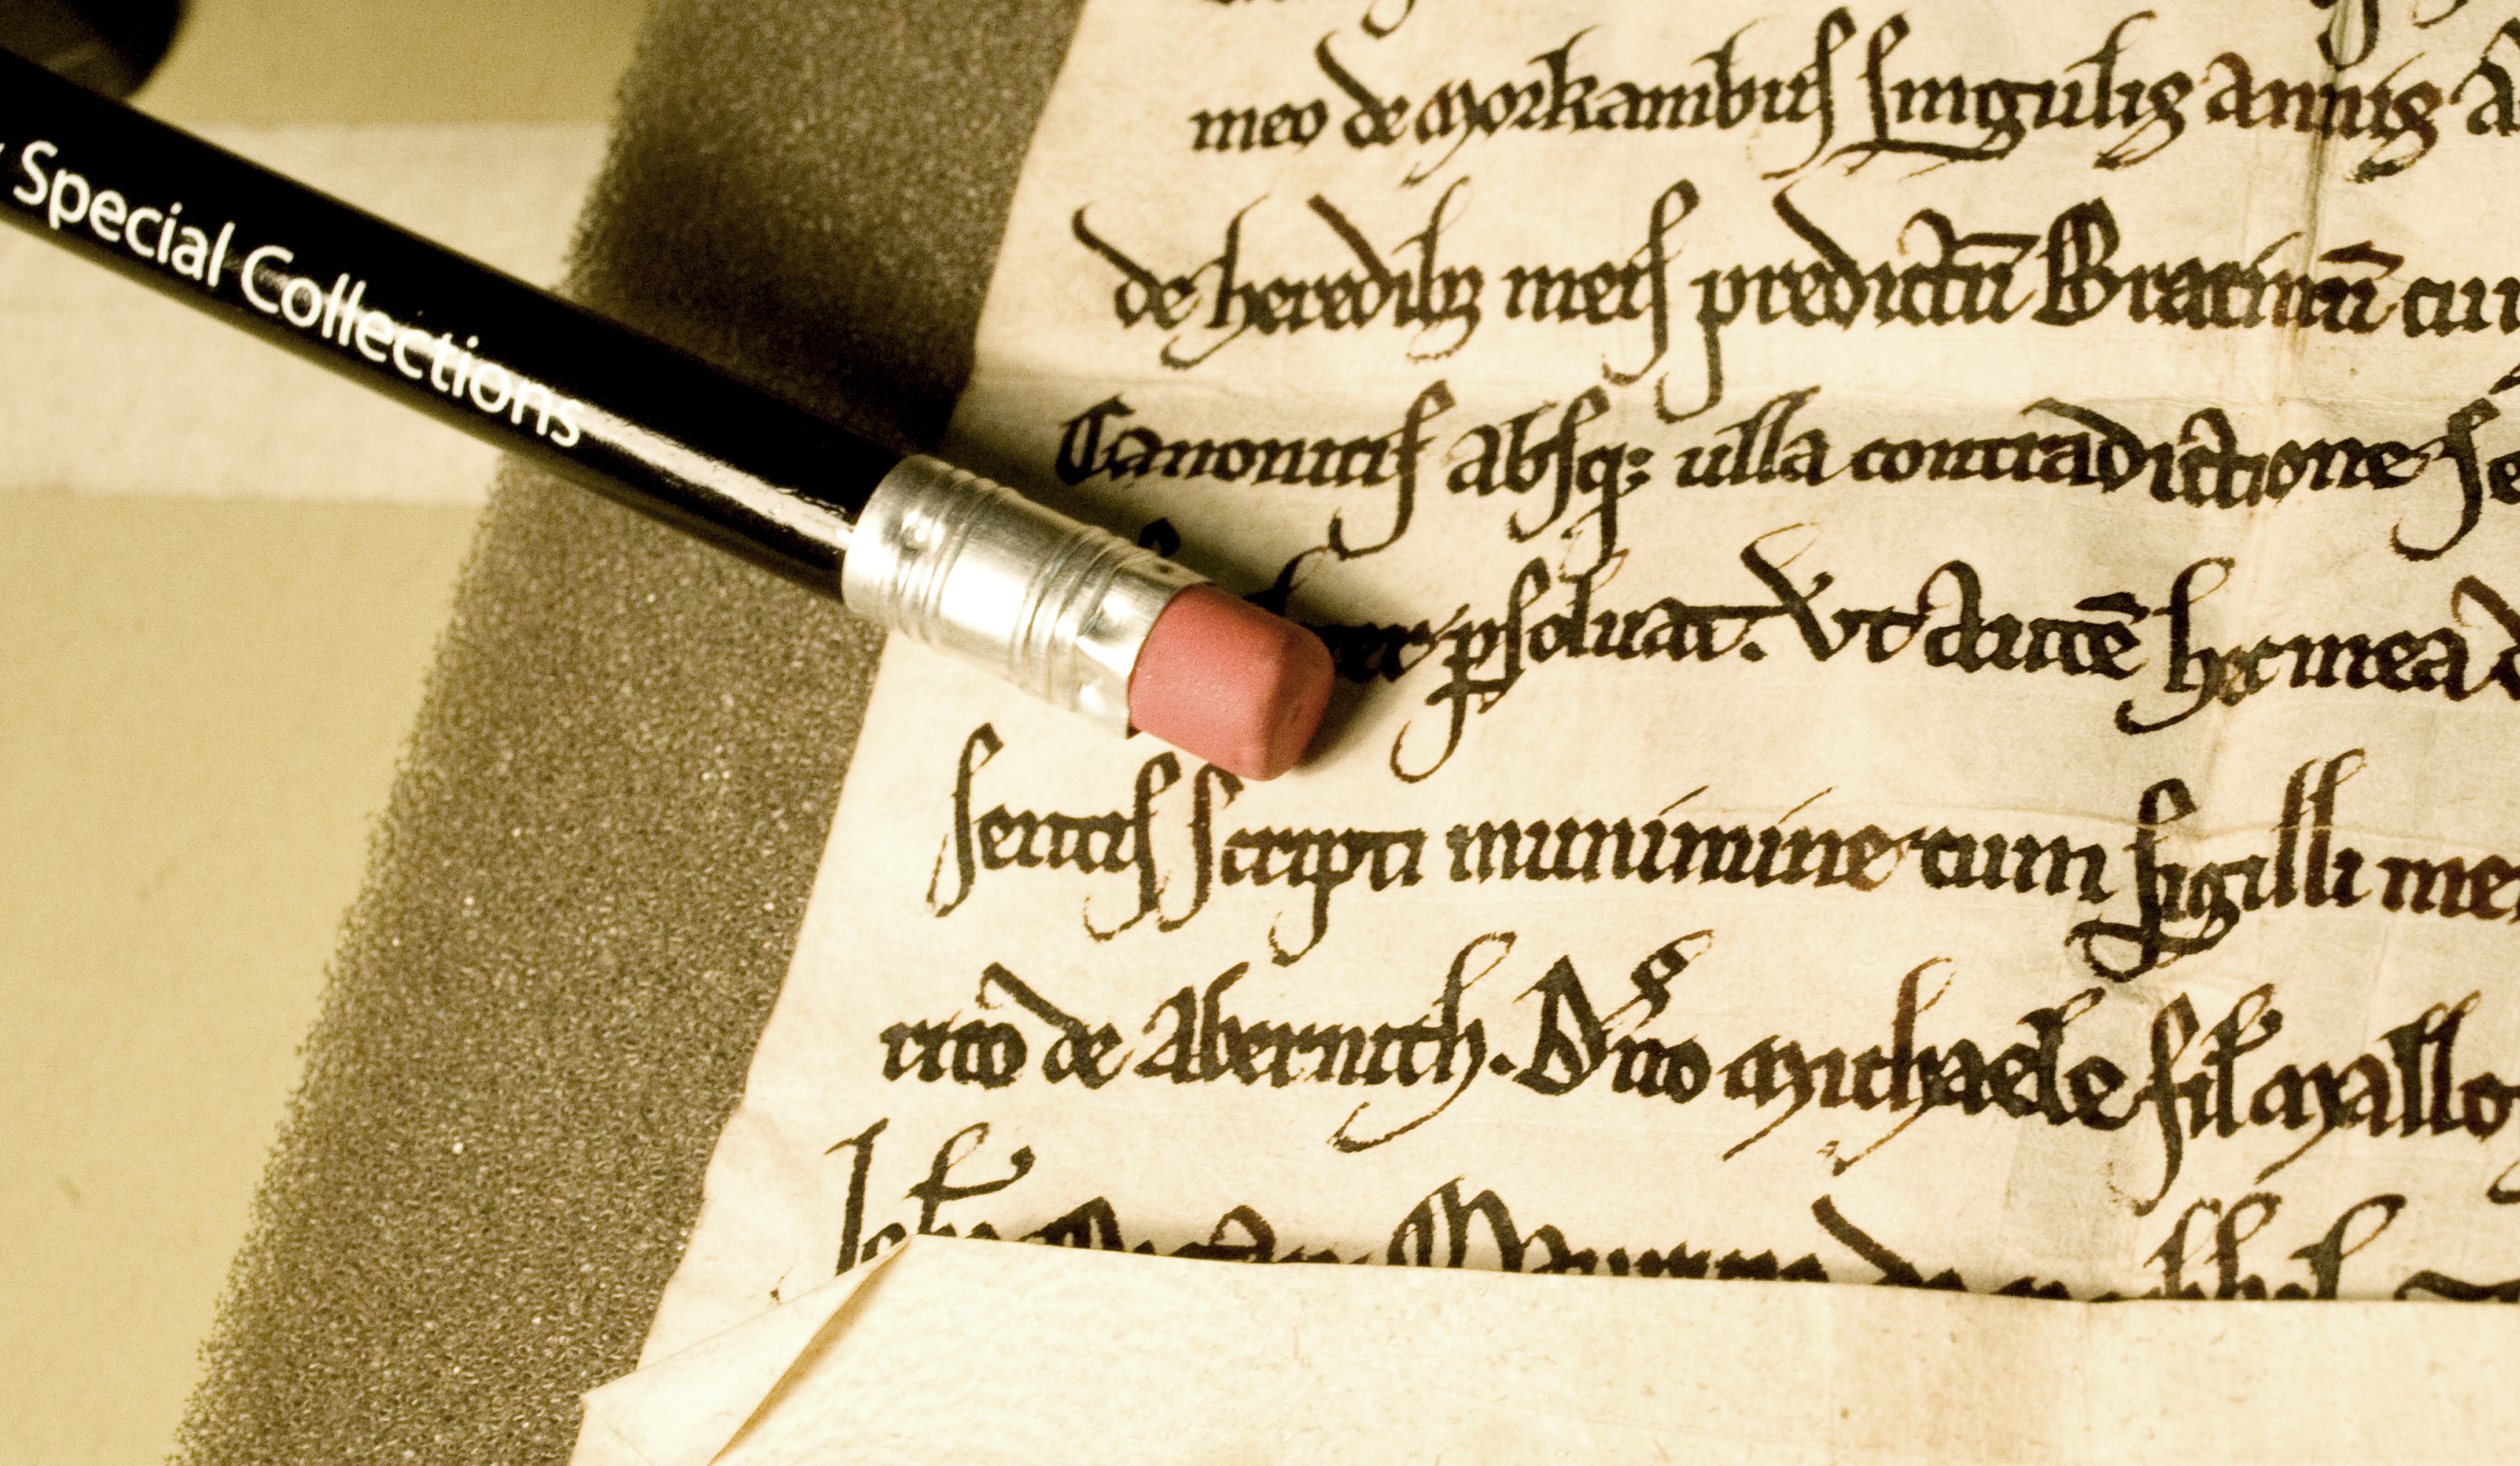 Special Collections
meo de Morkambus singulis annis
de heredibȝ meis predictū Bracinū cum
Canonicis absqȝ ulla contradictione
psoluat. Vt autē hec mea
sentis scripti munimine cum sigilli me
rico de Abernith. Dno Michaele fil Mallo